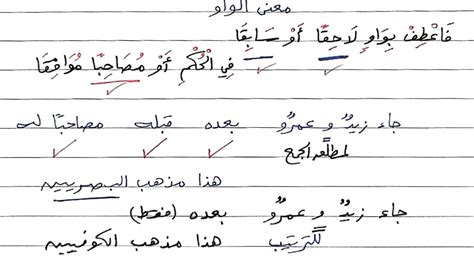 معنى الواو
فَاعْطِفْ بِوَاوٍ لَاحِقًا أَوْ سَابِقًا
فِي الْحُكْمِ أَوْ مُصَاحِبًا مُوَافِقَا
جاء زيدٌ و عمرٌو بعده قبله مصاحبًا له
لمطلق الجمع
هذا مذهب البصريين
جاء زيدٌ و عمرٌو بعده (فقط)
للترتيب هذا مذهب الكوفيين